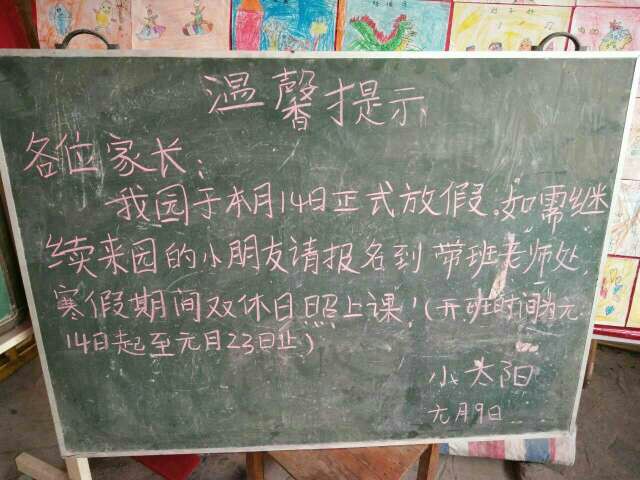 温馨提示
各位家长：
我园于本月14日正式放假。如需继
续来园的小朋友请报名到带班老师处，
寒假期间双休日照上课！（开班时间为元.
14日起至元月23日止）
小太阳
元月9日